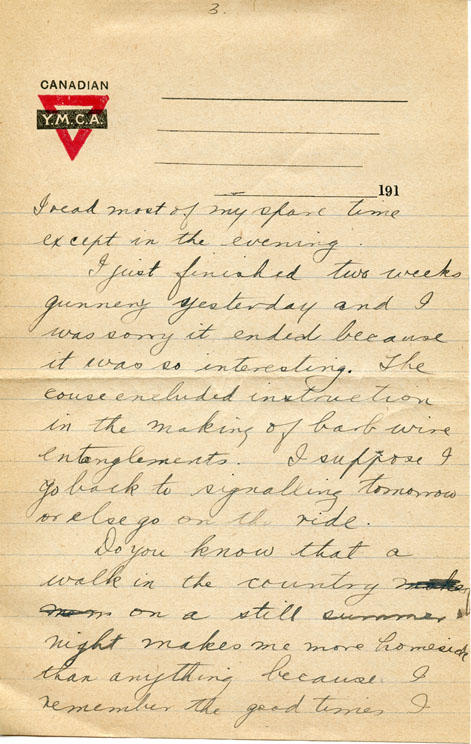 3.
CANADIAN
Y.M.C.A.
191
I read most of my spare time
except in the evening.
I just finished two weeks
gunnery yesterday and I
was sorry it ended because
it was so interesting. The
couse encluded instruction
in the making of barb wire
entanglements. I suppose I
go back to signalling tomorrow
or else go on the ride.
Do you know that a
walk in the country
on a still summer
night makes me more homesick
than anything because I
remember the good times I